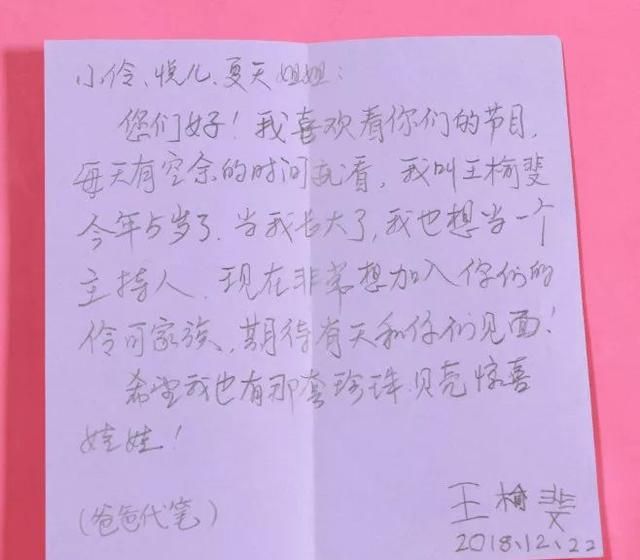 小伶、悦儿、夏天姐姐：
您们好！我喜欢看你们的节目，
每天有空余的时间就看，我叫王榆斐
今年5岁了．当我长大了，我也想当一个
主持人．现在非常想加入你们的
伶可家族，期待有天和你们见面！
希望我也有那套珍珠贝壳惊喜
娃娃！
王榆斐
（爸爸代笔）
2018.12.22